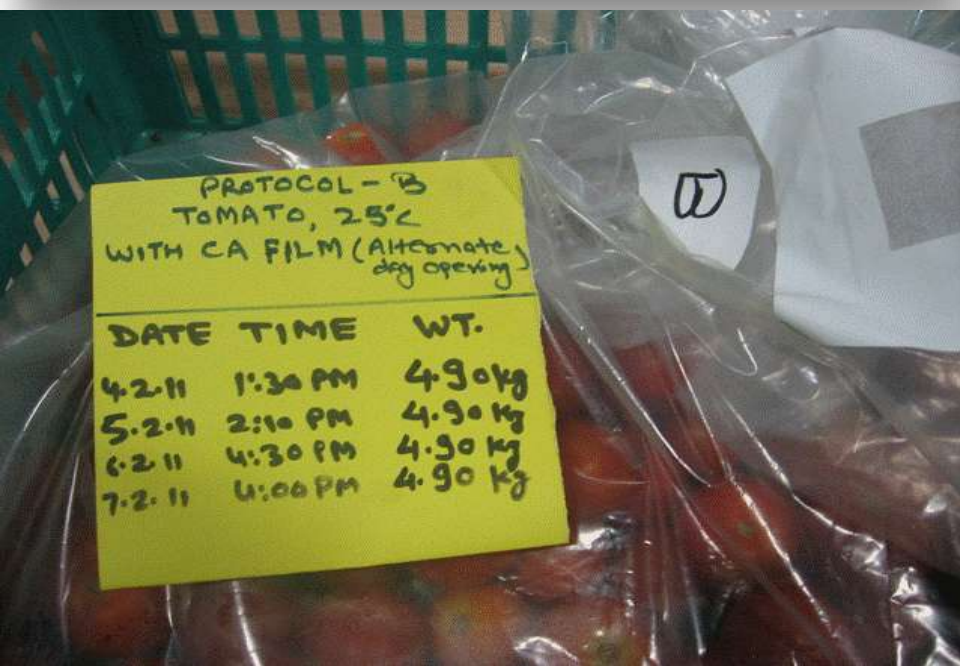 PROTOCOL - B
TOMATO, 25°C
WITH CA FILM (Alternate
day opening)
DATE TIME WT.
4.2.11 1:30 PM 4.90kg
5.2.11 2:10 PM 4.90 kg
6.2.11 4:30 PM 4.90 kg
7.2.11 4:00 PM 4.90 kg